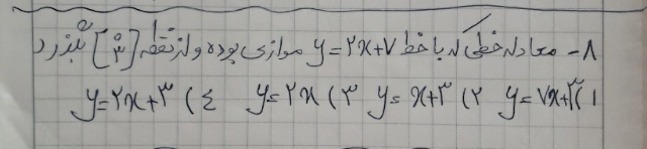 ۸- معادله خطی که با خط y=۲x+۷ موازی بوده و از نقطه [۰ ۳] بگذرد
۱) y=۷x+۳ ۲) y=x+۳ ۳) y=۲x ۴) y=۲x+۳